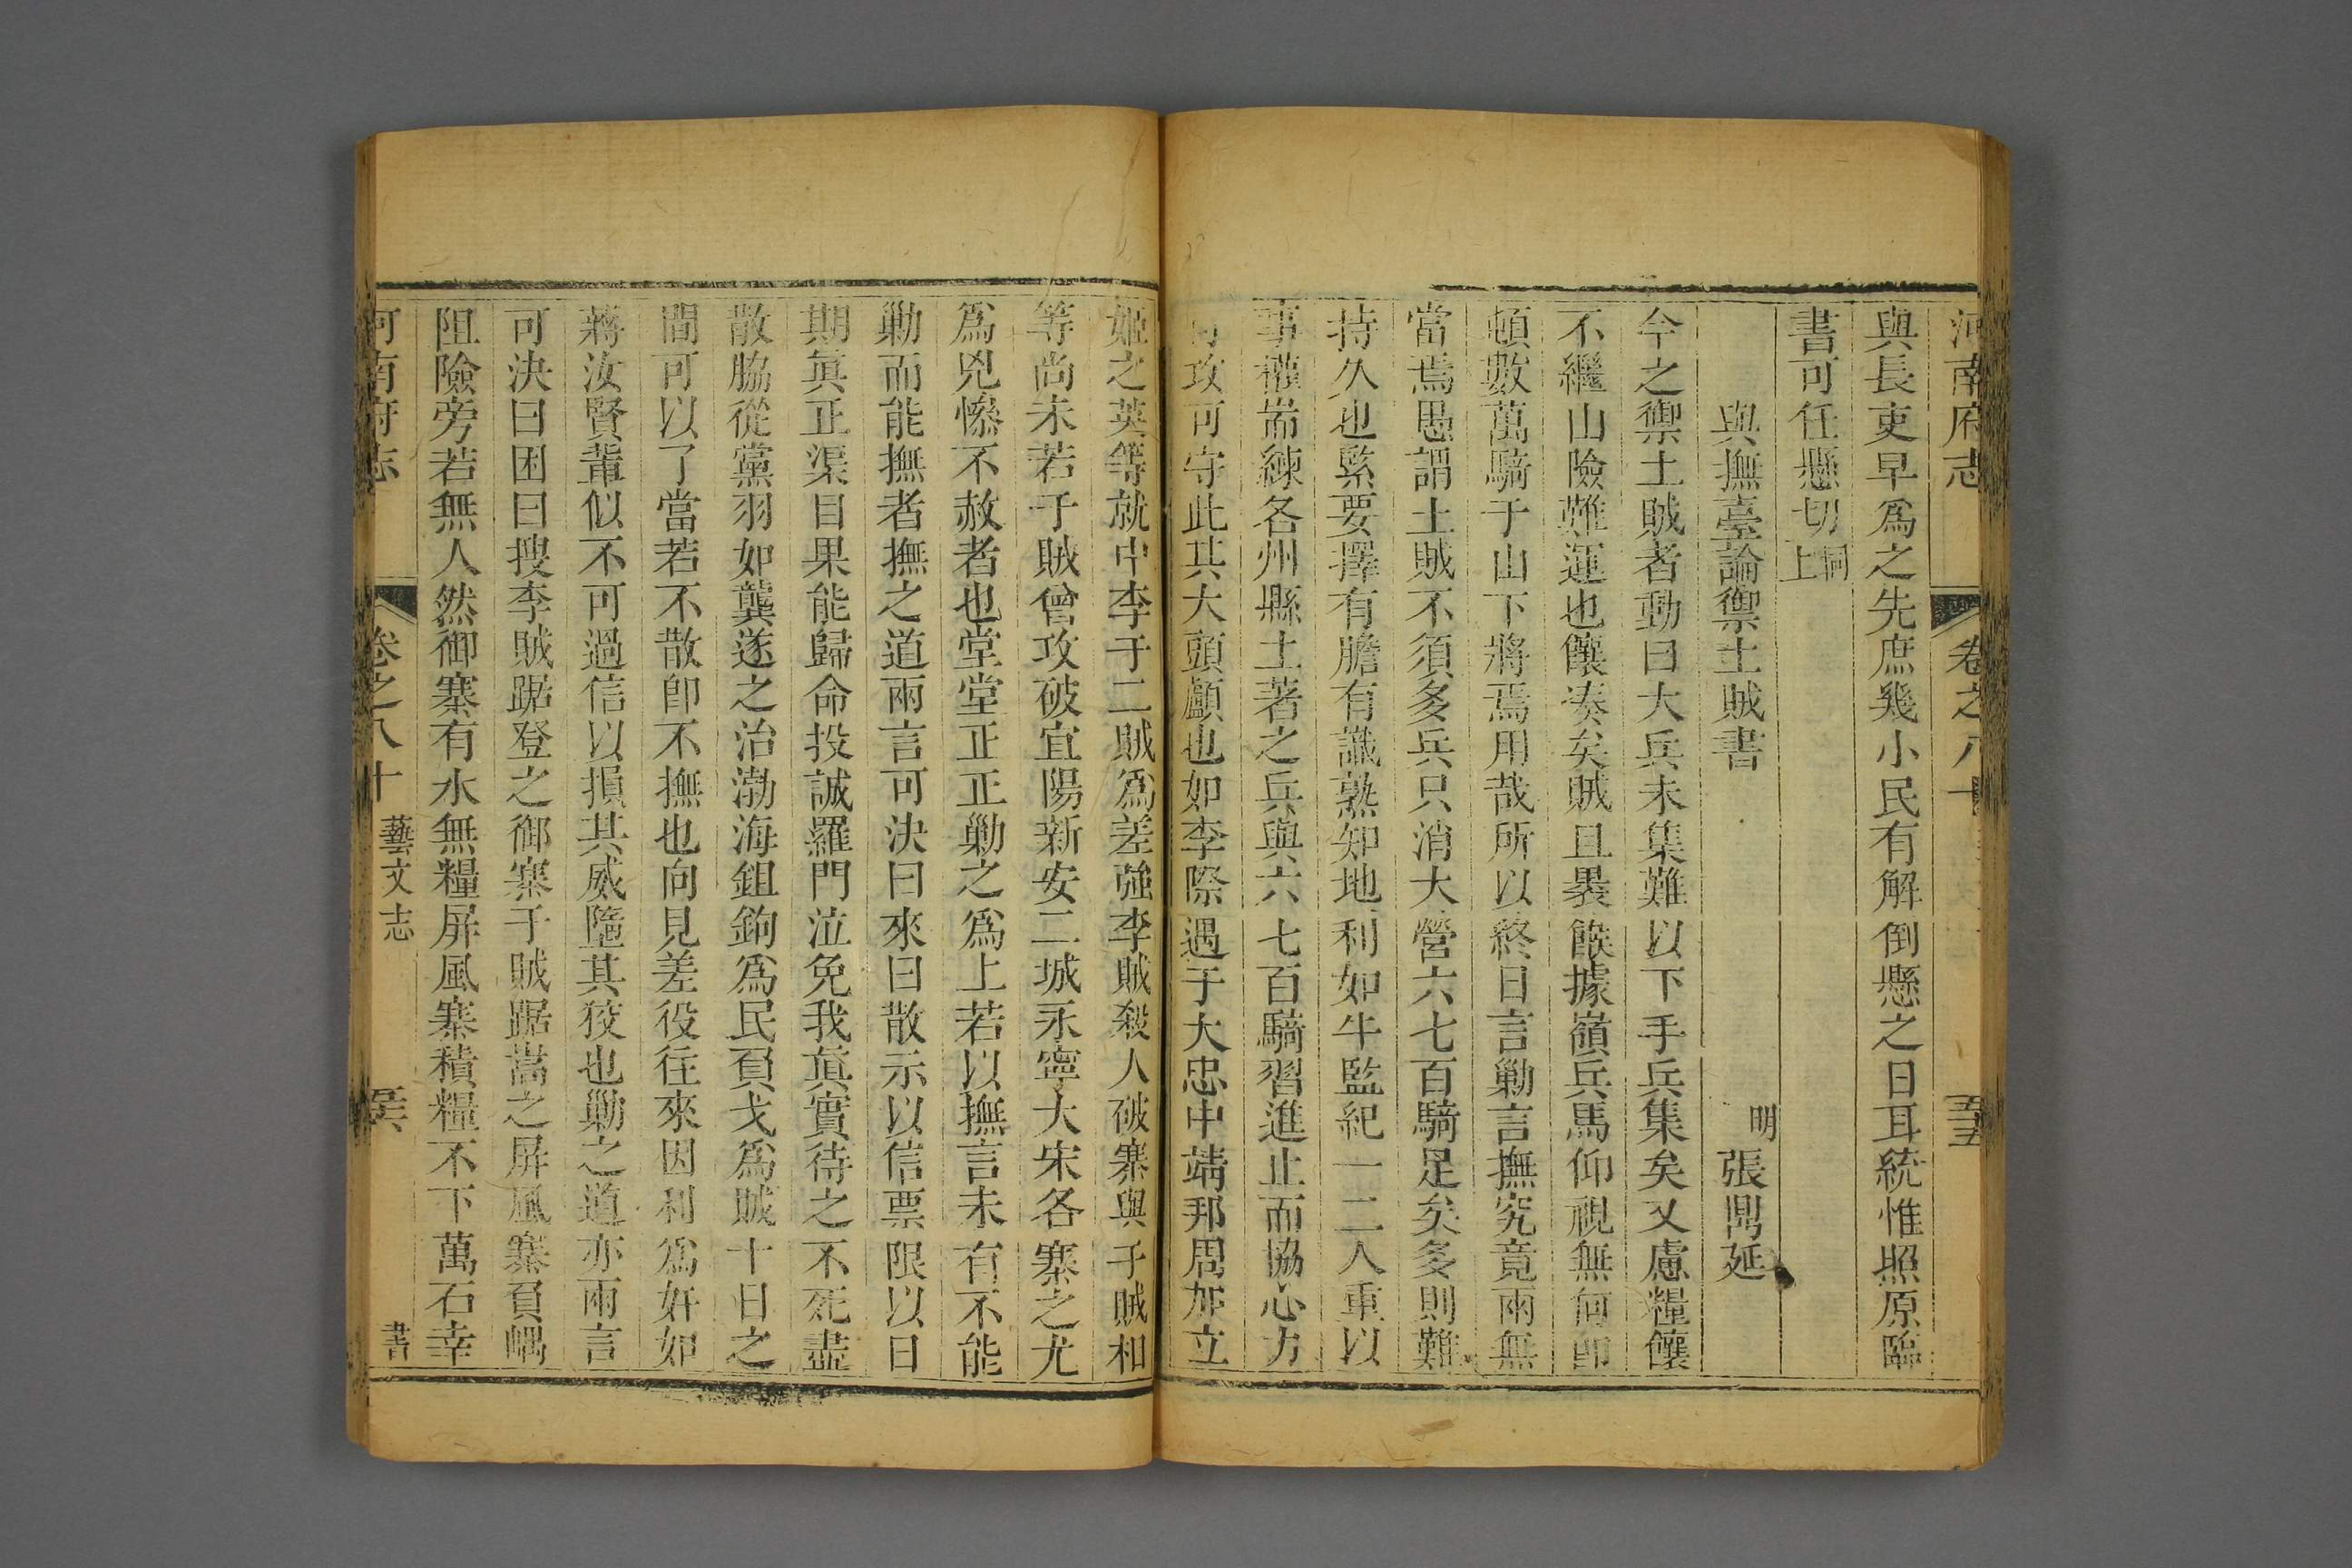 河南府志 卷之八十 五五
與長吏早為之先庶幾小民有解倒懸之日耳統惟照原臨
書可任懸切 同上
與撫臺論禦土賊書 明 張鼎延
今之禦土賊者動曰大兵未集難以下手兵集矣又慮糧饟
不繼山險難運也饟湊矣賊且裹餱據嶺兵馬仰視無何即
頓數萬騎于山下將焉用哉所以終日言勦言撫究竟兩無
當焉愚謂土賊不須多兵只消大營六七百騎足矣多則難
持久也緊要擇有膽有識熟知地利如牛監紀一二人重以
事權耑練各州縣土著之兵與六七百騎習進止而協心方
可攻可守此其大頭顱也如李際遇于大忠申靖邦周加立
姬之英等就中李于二賊為差強李賊殺人破寨與于賊相
等尚未若于賊曾攻破宜陽新安二城永寧大宋各寨之尤
為兇慘不赦者也堂堂正正勦之為上若以撫言未有不能
勦而能撫者撫之道兩言可決曰來曰散示以信票限以日
期眞正渠目果能歸命投誠羅門泣免我眞實待之不死盡
散脇從黨羽如龔遂之治渤海鉏鉤為民負戈為賊十日之
間可以了當若不散卽不撫也向見差役往來因利為奸如
蔣汝賢輩似不可過信以損其威墮其狡也勦之道亦兩言
可決曰困曰搜李賊踞登之御寨于賊踞嵩之屏風寨負嵎
阻險旁若無人然御寨有水無糧屏風寨積糧不下萬石幸
河南府志 卷之八十 藝文志 五六 書